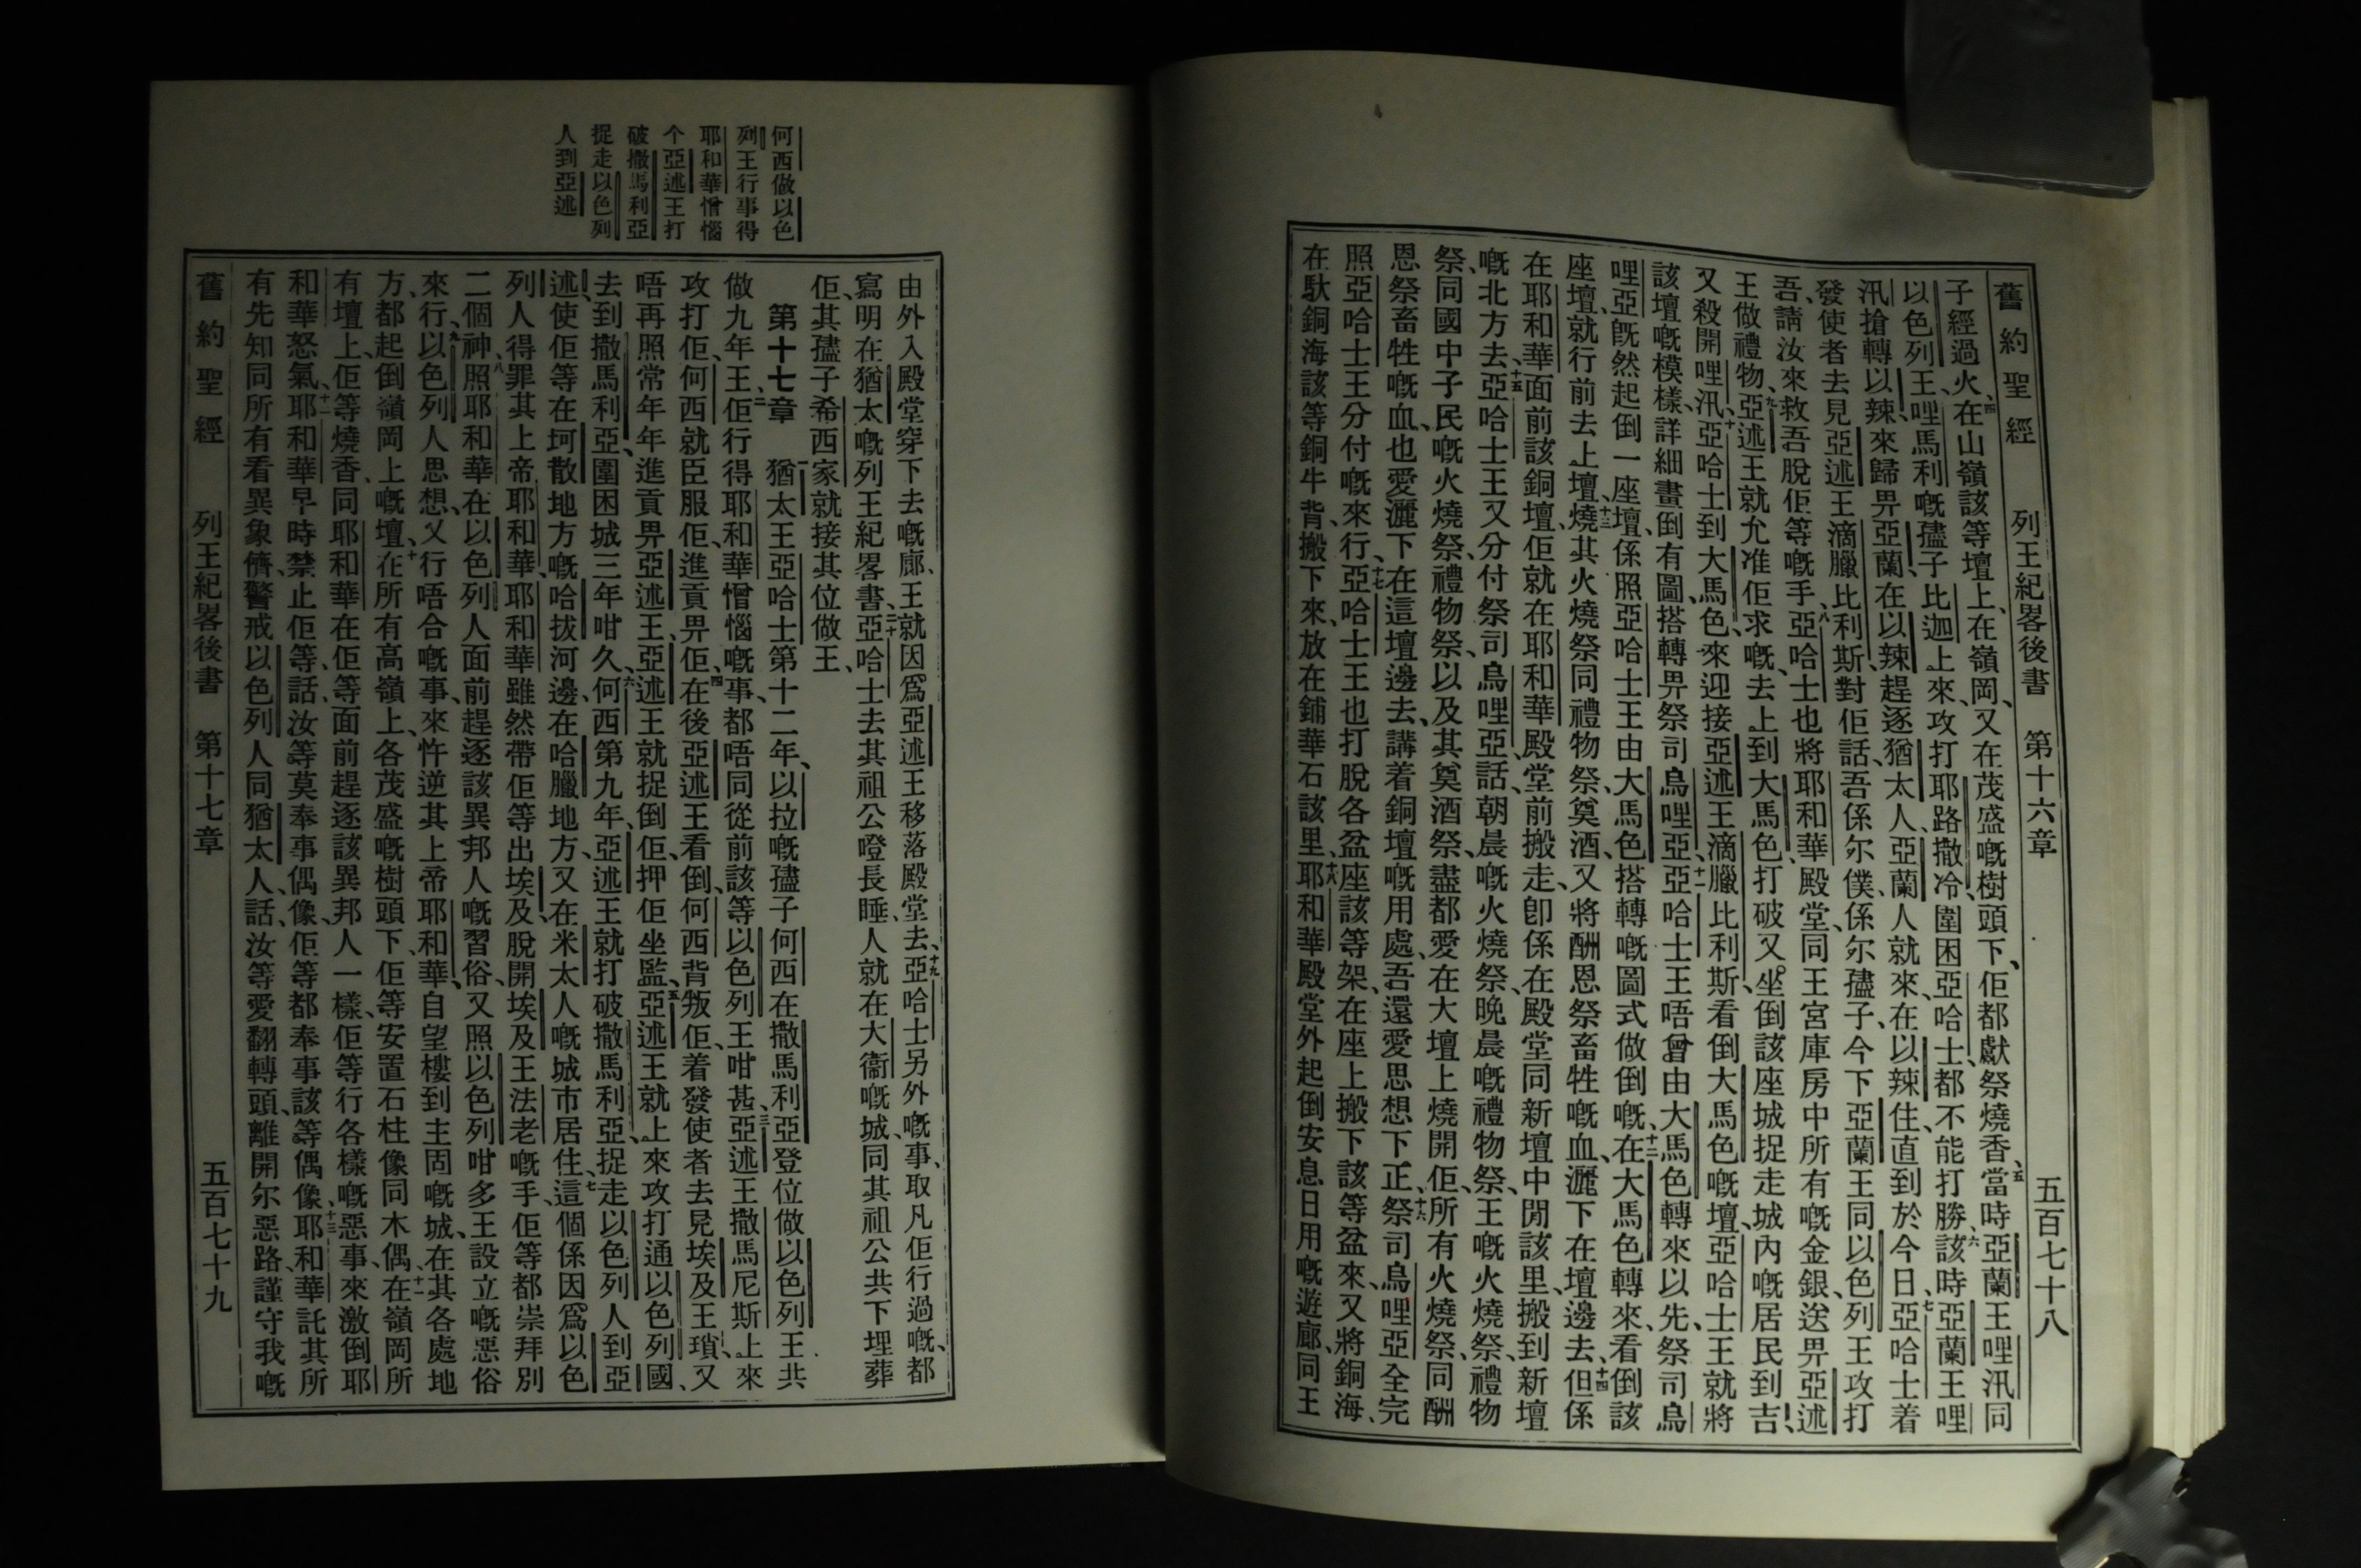 舊約聖經 列王紀畧後書 第十六章 五百七十八
子經過火、四在山嶺該等壇上、在嶺岡、又在茂盛嘅樹頭下、佢都獻祭燒香、五當時亞蘭王哩汛同
以色列王、哩馬利嘅孻子比迦上來、攻打耶路撒冷、圍困亞哈士、都不能打勝、六該時亞蘭王哩
汛搶轉以辣、來歸畀亞蘭、在以辣趕逐猶太人、亞蘭人就來在以辣住、直到於今日、七亞哈士着
發使者去見亞述王滴臘比利斯、對佢話、吾係尔僕、係尔孻子、今下亞蘭王同以色列王攻打
吾、請汝來救吾脫佢等嘅手、八亞哈士也將耶和華殿堂、同王宮庫房中所有嘅金銀、送畀亞述
王做禮物、九亞述王就允准佢求嘅、去上到大馬色、打破又坐倒該座城、捉走城內嘅居民到吉、
又殺開哩汛、十亞哈士到大馬色、來迎接亞述王滴臘比利斯、看倒大馬色嘅壇、亞哈士王就將
該壇嘅模樣、詳細畫倒有圖、搭轉畀祭司烏哩亞、十一亞哈士王唔曾由大馬色轉來以先、祭司烏
哩亞旣然起倒一座壇、係照亞哈士王由大馬色搭轉嘅圖式做倒嘅、十二在大馬色轉來、看倒該
座壇、就行前去上壇、十三燒其火燒祭同禮物祭、奠酒、又將酬恩祭畜牲嘅血、灑下在壇邊去、十四但係
在耶和華面前該銅壇、佢就在耶和華殿堂前搬走、卽係在殿堂同新壇中間該里、搬到新壇
嘅北方去、十五亞哈士王又分付祭司烏哩亞、話、朝晨嘅火燒祭、晚晨嘅禮物祭、王嘅火燒祭、禮物
祭、同國中子民嘅火燒祭、禮物祭、以及其奠酒祭、盡都愛在大壇上燒開佢、所有火燒祭、同酬
恩祭畜牲嘅血、也愛灑下在這壇邊去、講着銅壇嘅用處、吾還愛思想下正、十六祭司烏哩亞全完
照亞哈士王分付嘅來行、十七亞哈士王也打脫各盆座該等架、在座上搬下該等盆來、又將銅海、
在馱銅海該等銅牛背、搬下來、放在鋪華石該里、十八耶和華殿堂外起倒安息日用嘅遊廊、同王
何西做以色
列王行事得
耶和華憎惱
个亞述王打
破撒馬利亞
捉走以色列
人到亞述
由外入殿堂穿下去嘅廊、王就因爲亞述王移落殿堂去、十九亞哈士另外嘅事、取凡佢行過嘅、都
寫明在猶太嘅列王紀畧書、二十亞哈士去其祖公嶝長睡、人就在大衞嘅城、同其祖公共下埋葬
佢、其孻子希西家就接其位做王、
第十七章 一猶太王亞哈士第十二年、以拉嘅孻子何西在撒馬利亞登位做以色列王共
做九年、二王佢行得耶和華憎惱嘅事、都唔同從前該等以色列王咁甚、三亞述王撒馬尼斯上來
攻打佢、何西就臣服佢、進貢畀佢、四在後亞述王看倒何西背叛佢、着發使者去見埃及王瑣、又
唔再照常年年進貢畀亞述王、亞述王就捉倒佢、押佢坐監、五亞述王就上來攻打通以色列國、
去到撒馬利亞、圍困城三年咁久、六何西第九年、亞述王就打破撒馬利亞、捉走以色列人到亞
述、使佢等在坷散地方嘅哈拔河邊、在哈臘地方、又在米太人嘅城市居住、七這個係因爲以色
列人得罪其上帝耶和華、耶和華雖然帶佢等出埃及、脫開埃及王法老嘅手、佢等都崇拜別
二個神、八照耶和華在以色列人面前趕逐該異邦人嘅習俗、又照以色列咁多王設立嘅惡俗
來行、九以色列人思想、又行唔合嘅事、來忤逆其上帝耶和華、自望樓到主固嘅城、在其各處地
方、都起倒嶺岡上嘅壇、十在所有高嶺上、各茂盛嘅樹頭下、佢等安置石柱像同木偶、十一在嶺岡所
有壇上、佢等燒香、同耶和華在佢等面前趕逐該異邦人一樣、佢等行各樣嘅惡事、來激倒耶
和華怒氣、十二耶和華早時禁止佢等、話、汝等莫奉事偶像、佢等都奉事該等偶像、十三耶和華託其所
有先知同所有看異象儕、警戒以色列人同猶太人、話、汝等愛翻轉頭、離開尔惡路、謹守我嘅
舊約聖經 列王紀畧後書 第十七章 五百七十九